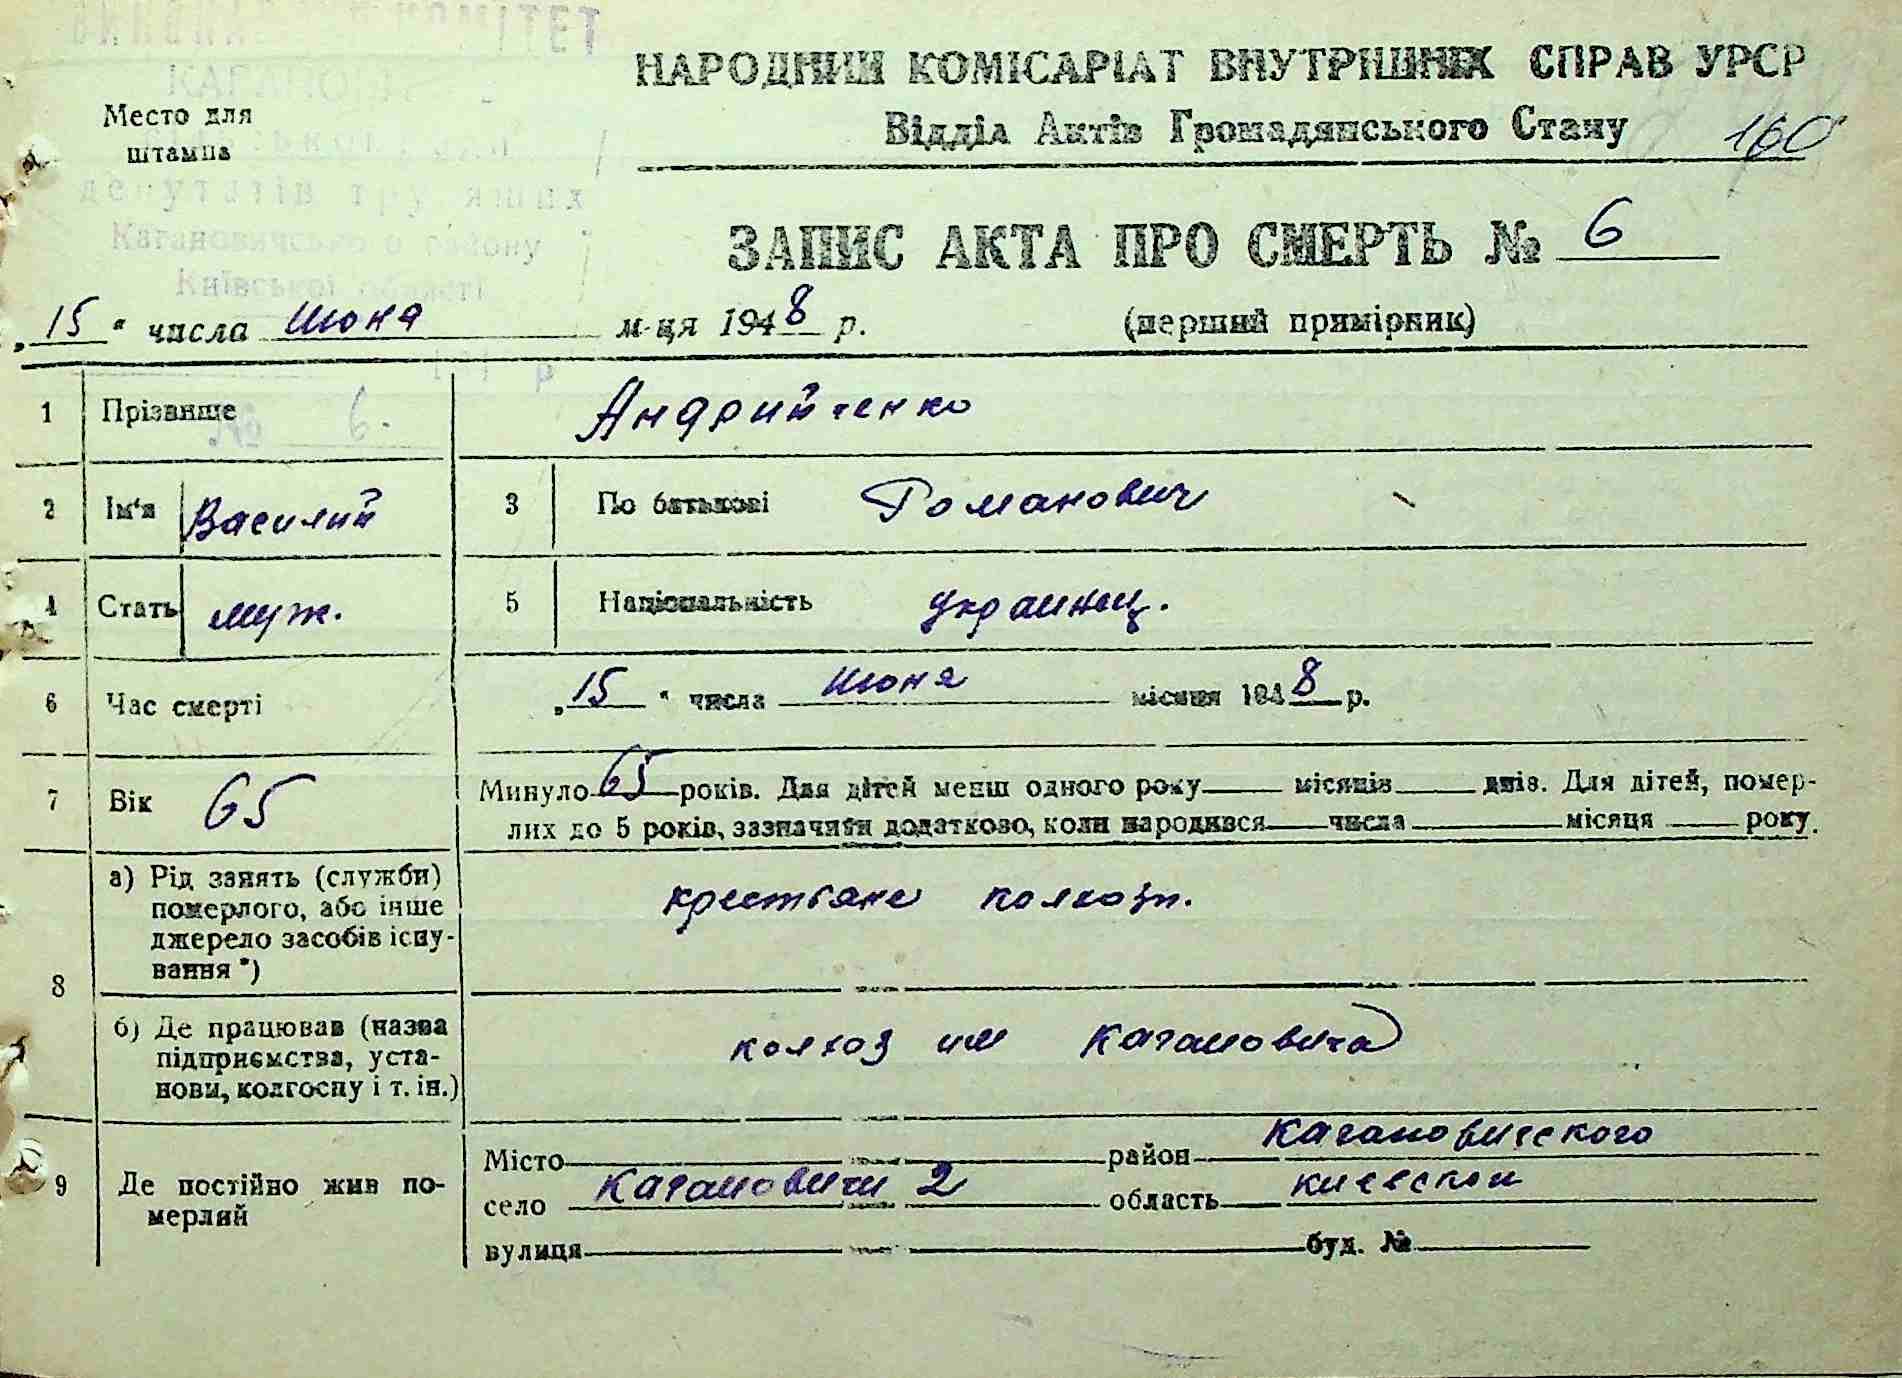 КОМІТЕТ
НАРОДНИЙ КОМІСАРІАТ ВНУТРІШНІХ СПРАВ УРСР
Место для
штампа
Відділ Актів Громадянського Стану 160
депутатів трудящих
Кагановичського району
Київської області
ЗАПИС АКТА ПРО СМЕРТЬ № 6
„15“ числа июня м-ця 1948 р. (перший примірник)
1 Прізвище Андрийченко
№ 6.
2 Ім'я Василий 3 По батькові Романович
4 Стать муж. 5 Національність украинец.
6 Час смерті „15“ числа июня місяця 1948 р.
7 Вік 65 Минуло 65 років. Для дітей менш одного року місяців днів. Для дітей, помер-
лих до 5 років, зазначити додатково, коли народився числа місяця року.
8 а) Рід занять (служби)
померлого, або інше
джерело засобів існу-
вання *)
крестьяне колхозн.
б) Де працював (назва
підприємства, уста-
нови, колгоспу і т. ін.)
колхоз им Кагановича
9 Де постійно жив по-
мерлий
Місто район Кагановичского
село Кагановичи 2 область киевской
вулиця буд. №